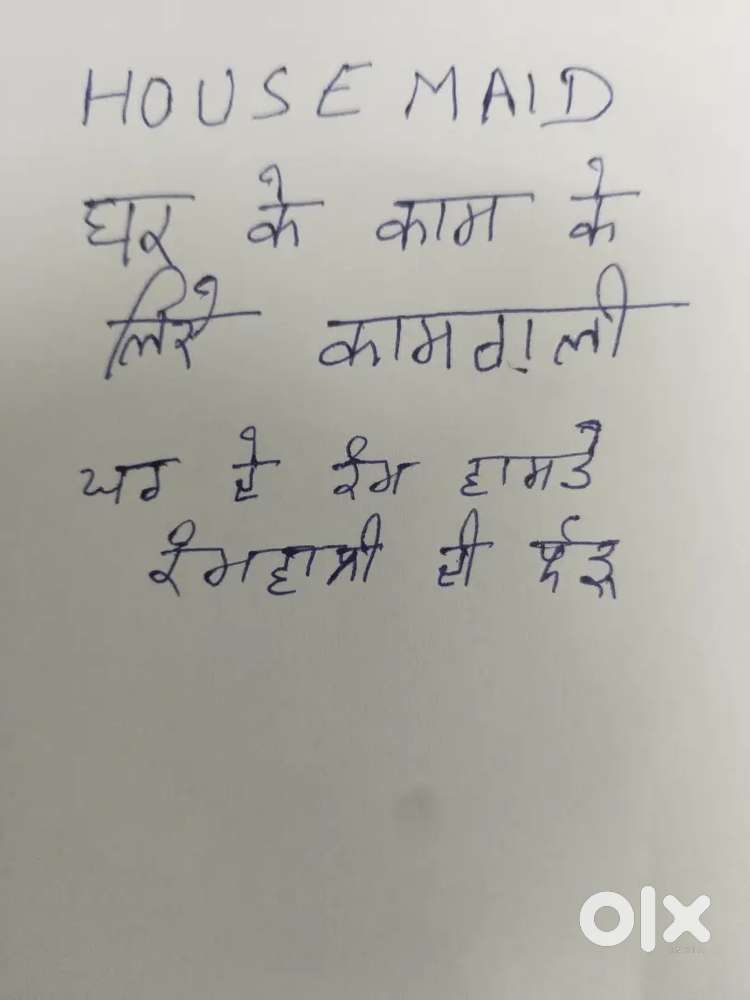 HOUSE MAID
घर के काम के
लिऐ कामवाली
ਘਰ ਦੇ ਕੰਮ ਵਾਸਤੇ
ਕੰਮਵਾਲੀ ਦੀ ਲੋੜ
olx